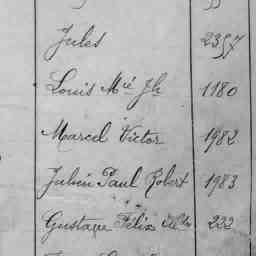 Jules 2357
Louis Mie Jh 1180
Marcel Victor 1982
Julien Paul Robert 1983
Gustave Félix 222